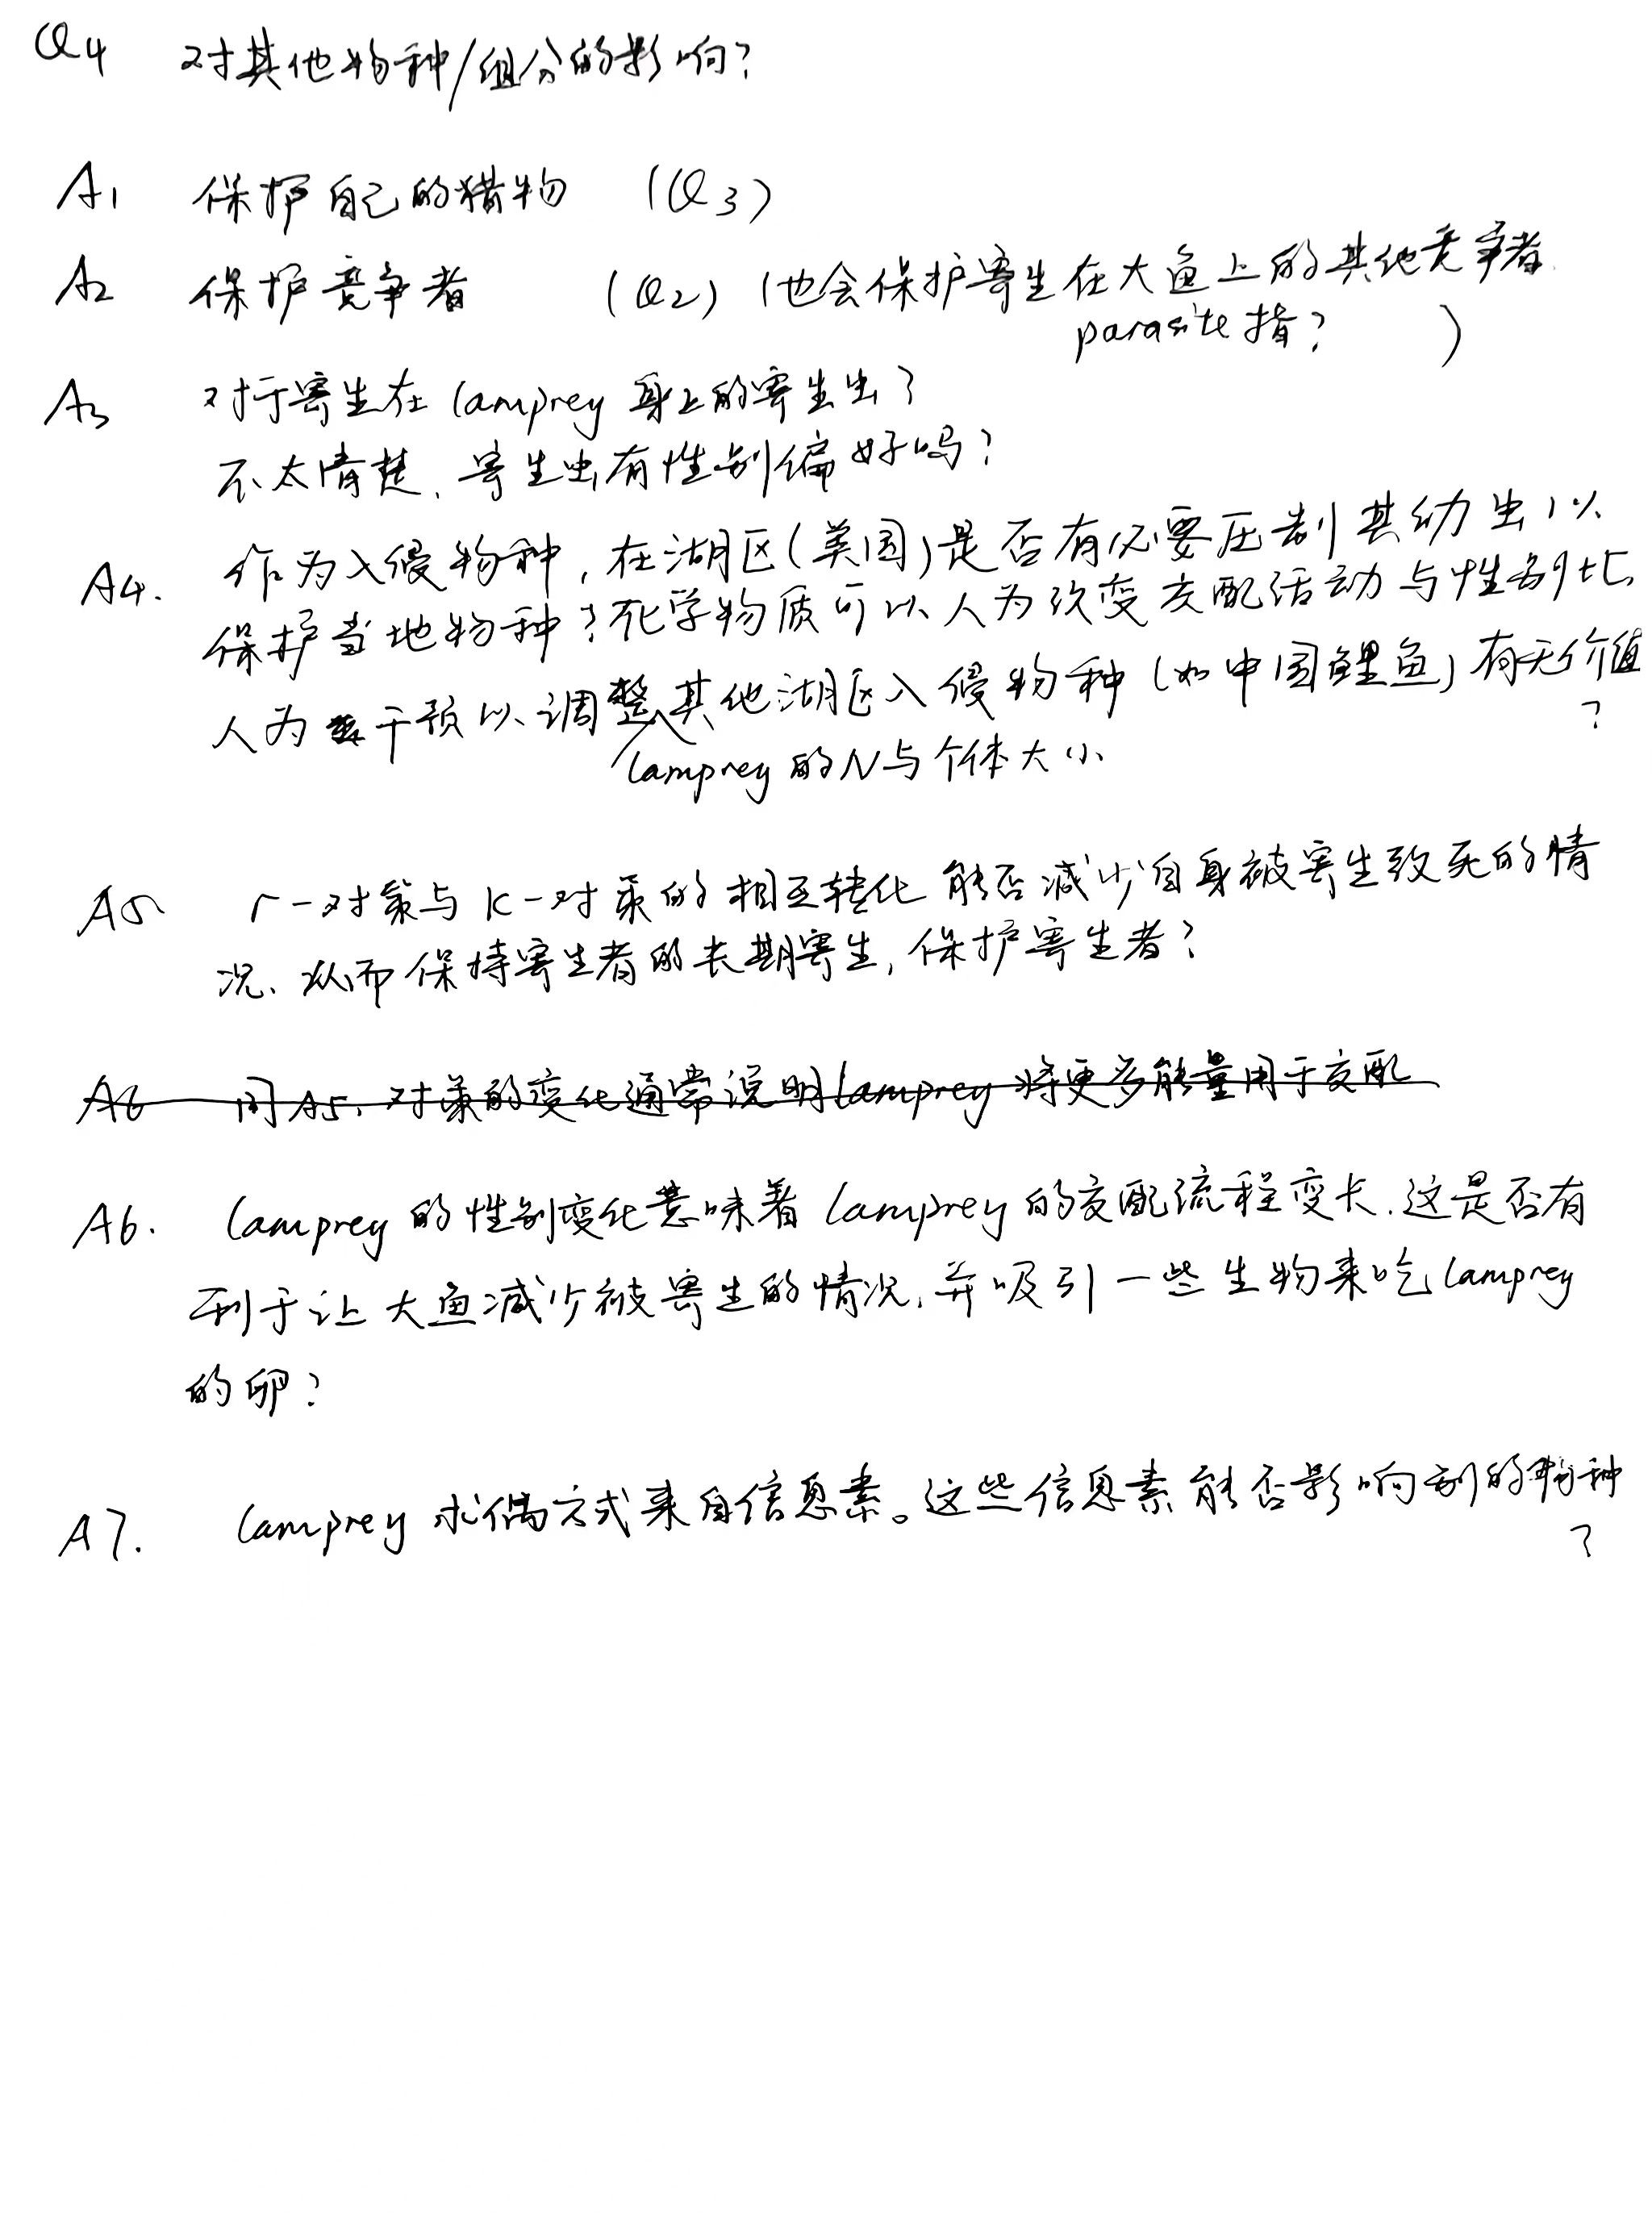 Q4 对其他物种/组分的影响?
A1 保护自己的猎物 (Q3)
A2 保护竞争者 (Q2) (也会保护寄生在大鱼上的其他竞争者.
parasite指? )
A3 对于寄生在lamprey身上的寄生虫?
不太清楚、寄生虫有性别偏好吗?
A4. 作为入侵物种,在湖区(美国)是否有必要压制其幼虫,以
保护当地物种?化学物质可以人为改变交配活动与性别比,
人为干预以调整其他湖区入侵物种(如中国鲤鱼)有无价值
?
lamprey的N与个体大小
A5 r-对策与K-对策的相互转化能否减少自身被寄生致死的情
况、从而保持寄生者的长期寄生,保护寄生者?
A6 同A5.对策的变化通常说明lamprey将更多能量用于交配
A6. lamprey的性别变化意味着lamprey的交配流程变长.这是否有
利于让大鱼减少被寄生的情况,并吸引一些生物来吃lamprey
的卵?
A7. lamprey求偶方式来自信息素。这些信息素能否影响别的物种
?